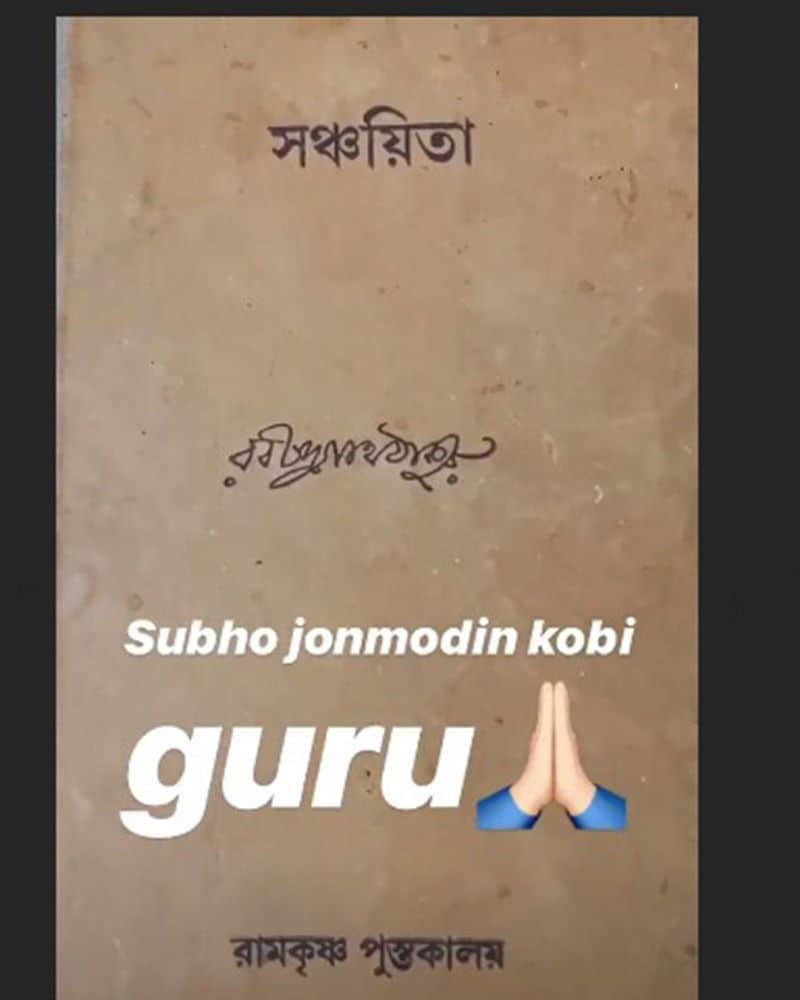 সঞ্চয়িতা
রবীন্দ্রনাথ ঠাকুর
Subho jonmodin kobi
guru🙏🏻
রামকৃষ্ণ পুস্তকালয়